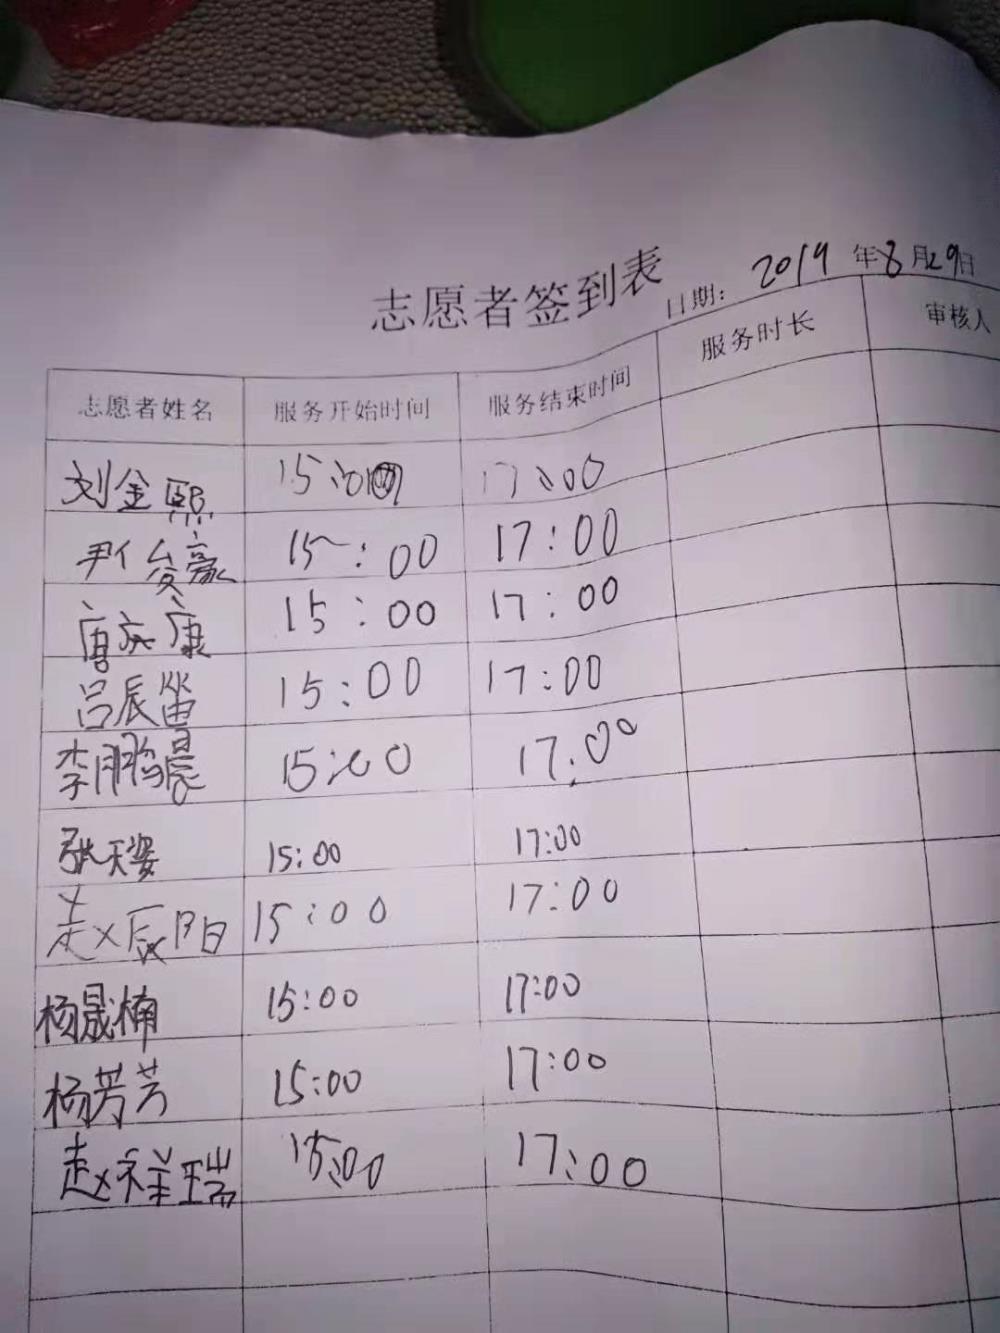 志愿者签到表
日期: 2019 年 8 月 29 日
志愿者姓名 服务开始时间 服务结束时间 服务时长 审核人
刘金熙 15:00 17:00
尹俊豪 15:00 17:00
唐庆康 15:00 17:00
吕辰笛 15:00 17:00
李鹏晨 15:00 17:00
张天姿 15:00 17:00
赵辰阳 15:00 17:00
杨晟楠 15:00 17:00
杨芳芳 15:00 17:00
赵祥瑞 15:00 17:00